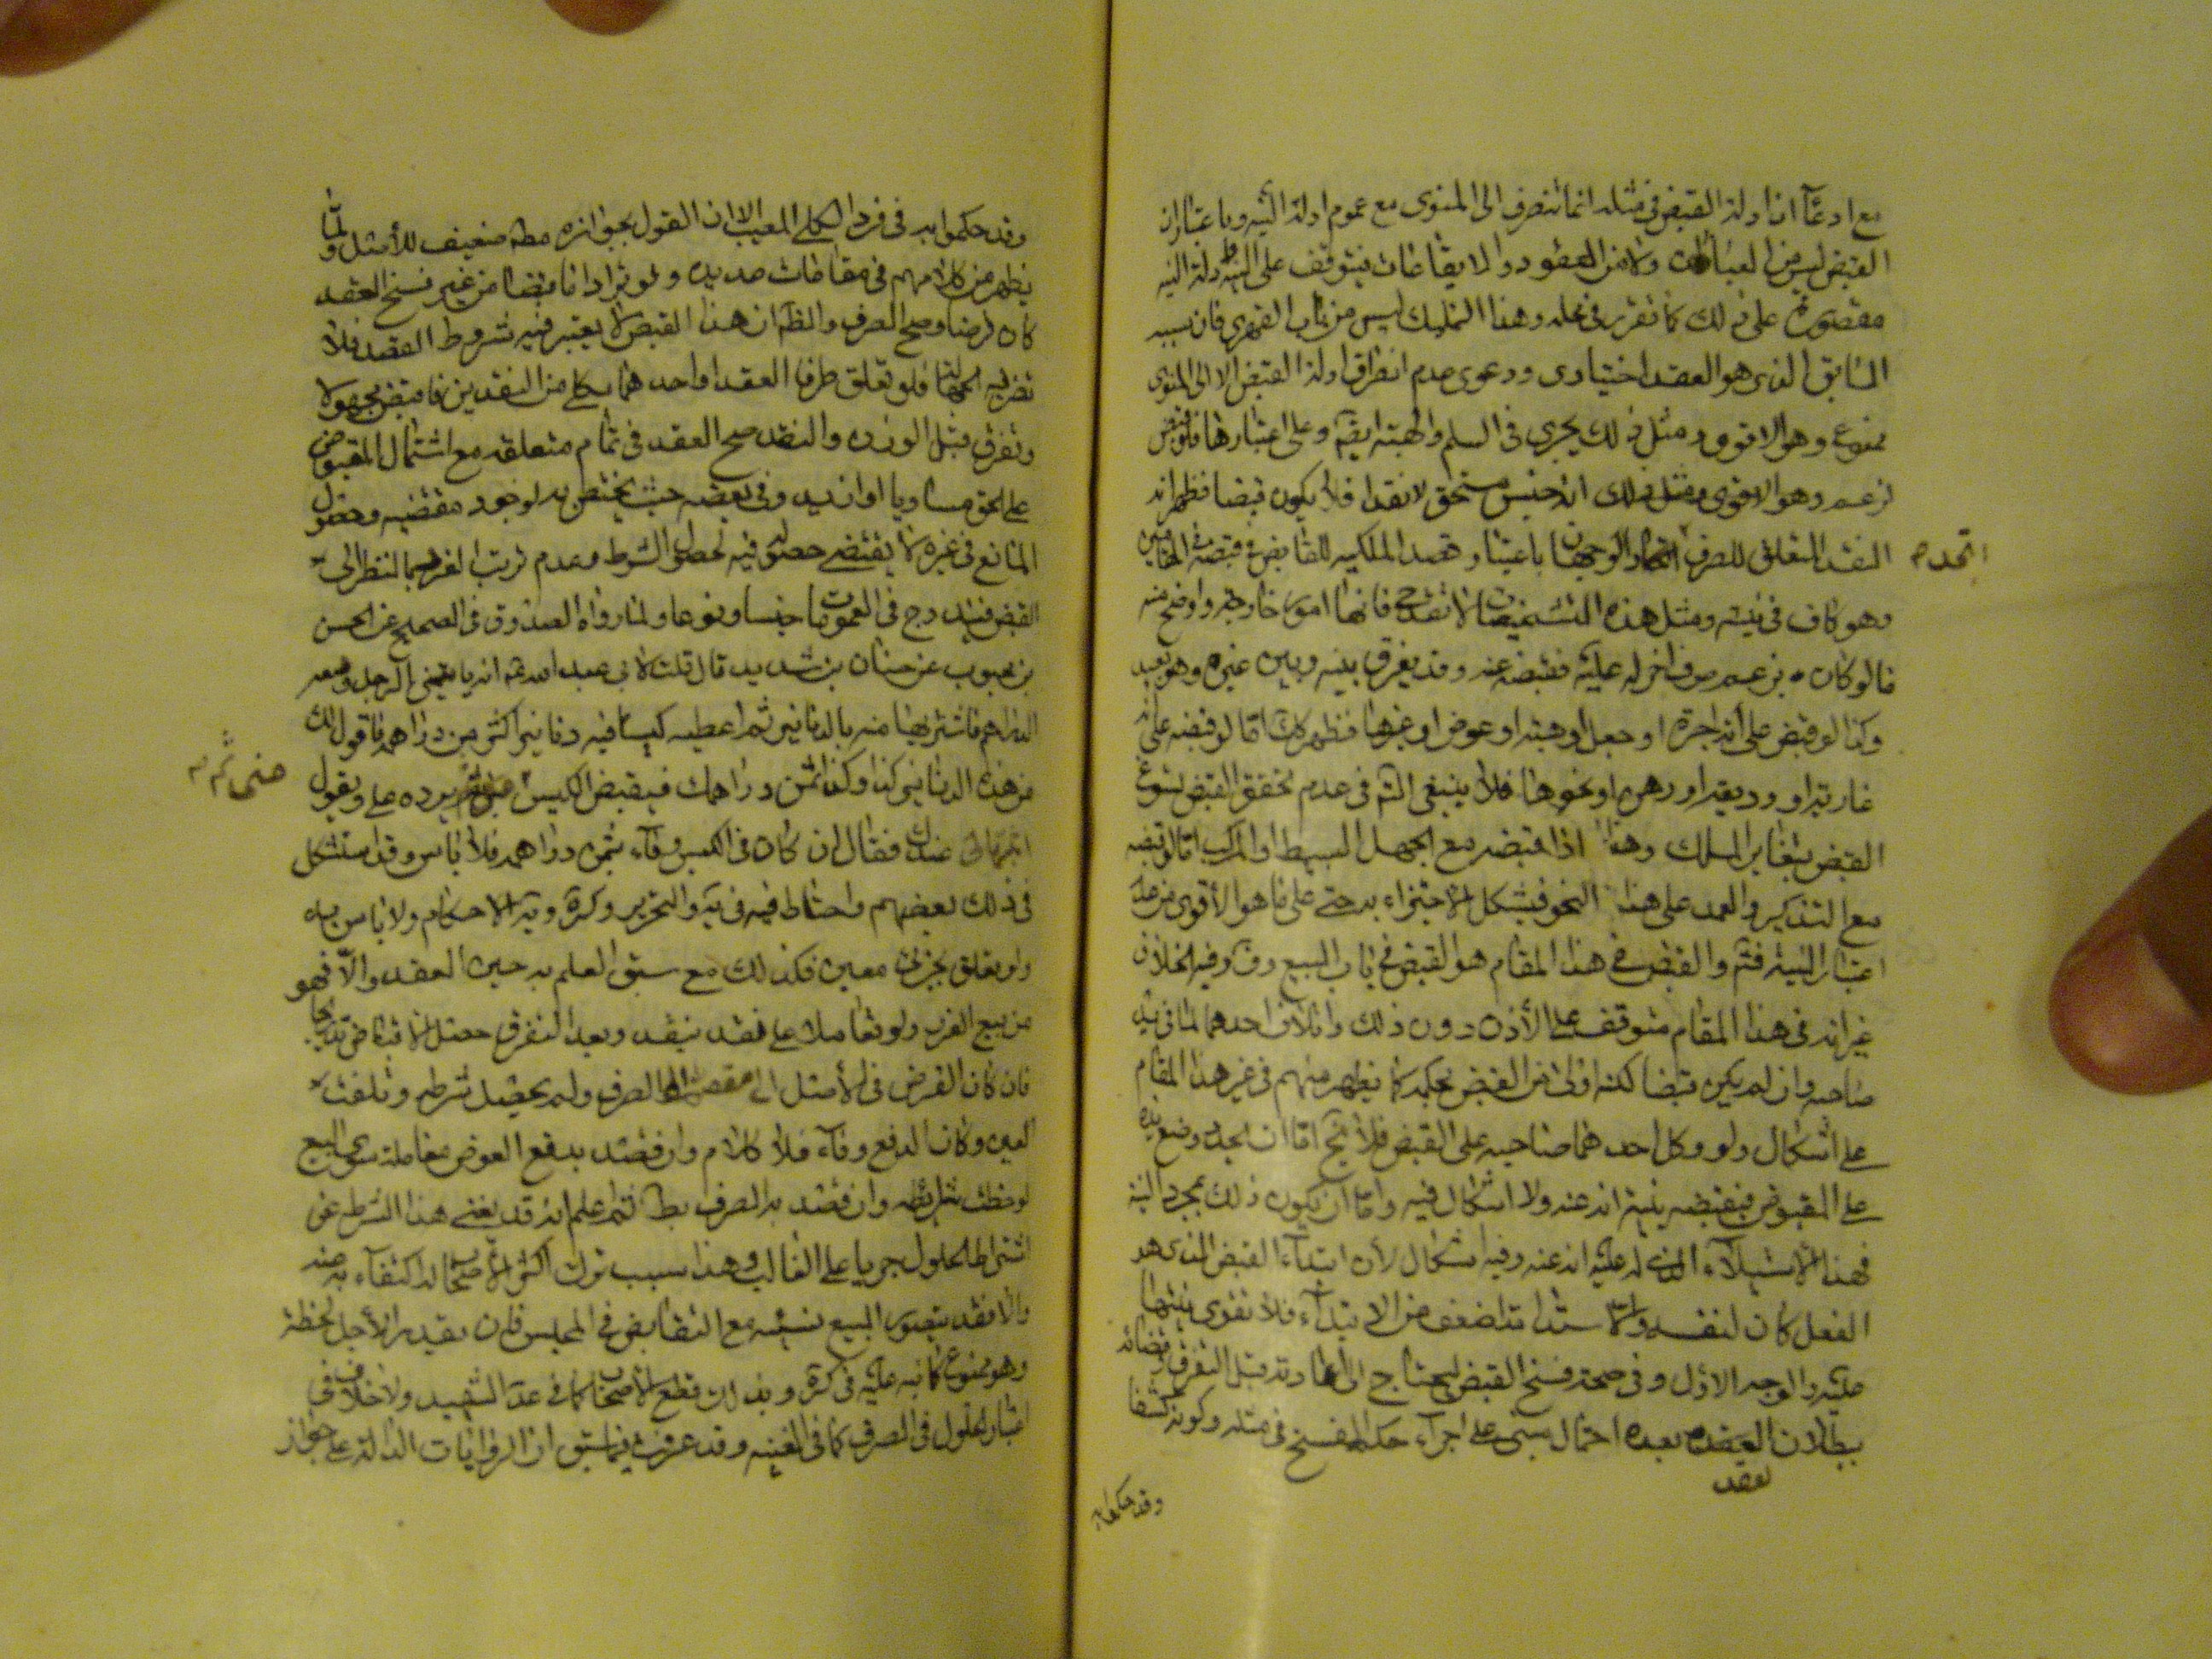 مع ادعآء ان ادلة القبض في مثله انما تنصرف الى المنوى مع عموم ادلة النية وباعتبار ان
القبض ليس من العبادات ولا من العقود والايقاعات فيتوقف على النية وادلة النية
مقصورة على ذلك كما تقرر في محله وهذا التمليك ليس من باب القهرى فان سببه
السابق الذى هو العقد اختيارى ودعوى عدم انصراف ادلة القبض الا الى المنوى
ممنوع وهو الاقوى ومثل ذلك يجرى فى السلم والهبة ايضا وعلى اعتبارها فلو قبض
بزعم انه جنس مستحق لا نقدا فلا يكون قبضا فظهر انه
النقد المتعلق للصرف باعتبار وقصد الملكيه للقابض
اتحد م
وهو كاف فى نيته ومثل هذه التشخيصات لا تقدح فانها امور خارجية واوضح منه
ما لو كان بزعم صرف اخر له عليه فقبضه عنه وقد يفرق بينه وبين غيره وهو بعيد
وكذا لو قبض على انه اجرة او جعل او هبة او عوض او غيرها فظهر كك امّا لو قبضه على
عارية او وديعة او رهن او نحوها فلا ينبغى الشك فى عدم تحقق القبض لتنوع
القبض بتغاير الملك وهذا اذا قبضه مع الجهل البسيط او المركب امّا لو قبضه
مع التذكير والعمد على هذا النحو فيشكل الاجتزاء به حتى على ما هو الأقوى من عدم
اعتبار النية فتم والقبض فى هذا المقام هو القبض فى باب البيع وفيه الخلاف
غير انه فى هذا المقام متوقف على الأذن دون ذلك واتلاف احدهما لما فى يد
صاحبه وان لم يكن قبضا لكنه اولى من القبض بحكمه كما يظهر منهم فى غير هذا المقام
على اشكال ولو وكل احدهما صاحبه على القبض فلا يخ امّا ان يجدد وضع يده
على المقبوض فيقبضه بنية انه عنه ولا اشكال فيه وامّا ان يكون ذلك بمجرد النية
فهذا الاستيلآء الذى له عليه انه عنه وفيه اشكال لأن ابتدآء القبض الذى هو
الفعل كان لنفسه والاستدامة اضعف من الابتدآء فلا تقوى نيتها
عليه والوجه الاوّل وفى صحة فسخ القبض ليحتاج الى اعادته قبل التفرق
بطلان العقد بعده احتمال يبنى على اجرآء حكم الفسخ فى مثله وكونه كشفا
لعقد
وقد حكموا به
وقد حكموا به فى فرد الكلى المعيب الا ان القول بجوازه مط ضعيف للأصل ولما
يظهر من كلامهم فى مقامات عديده ولو ترادا ما قبضا من غير فسخ العقد
كان قرضا وصح الصرف والظ ان هذا القبض لا يعتبر فيه شروط العقد فلا
تضر به الجهالة فلو تعلق طرفا العقد او احدهما بكلى من النقدين فاقبض مجهولا
وتفرق قبل الوزن والنقد صح العقد فى تمام متعلقه مع اشتمال المقبوض
على الحق مساويا او ازيد وفى بعضه حيث يختص به لوجود مقتضيه وحصول
المانع فى غيره لا يقتضى حصوله فيه لحصول الشرط وعدم ترتب الغرر بالنظر الى
القبض فيندرج فى العمومات جنسا ونوعا ولما رواه الصدوق فى الصحيح عن الحسن
بن محبوب عن حنان بن سدير قال قلت لابى عبد الله ع انه ياتينى الرجل ومعه
الدراهم فاشتريها منه بالدنانير ثم اعطيه كيسا فيه دنانير اكثر من دراهمه فاقول لك
من هذه الدنانير كذا وكذا ثمن دراهمك فيقبض الكيس يرده على ويقول
منى ثم م
اثبتها لى عندك فقال ان كان فى الكيس وفآء بثمن دراهمه فلا باس وقد استشكل
فى ذلك بعضهم واحتاط فيه فى ية والتحرير وكرة وية الاحكام ولا باس به
ولو تعلق بجزئى معين فكذلك مع سبق العلم به حين العقد والّا فهو
من بيع الغرر ولو تعاملا على نقد بنقد وبعد التفرق حصل التقابض تدريجا
فان كان الغرض فى الاصل الى الصرف ولم يحصل شرطه وتلفت
العين وكان الدفع وفآء فلا كلام وان قصد بدفع العوض معاملة سوى البيع
لوحظت شرائطه وان قصد به الصرف بط ثم اعلم انه قد يغنى هذا الشرط عن
اشتراط الحلول جريا على الغالب وهذا سبب ترك اكثر الاصحاب له اكتفآء به عنه
والا فقد يتصور البيع نسيئه مع التقابض فى المجلس فان تقدير الأجل لحظة
وهو ممنوع كما نبه عليه فى كرة وبذلك قطع الاصحاب كما فى عد الشهيد ولا خلاف فى
اعتبار الحلول فى الصرف كما فى الغنيه وقد عرفت فيما سبق ان الروايات الدالة على جواز